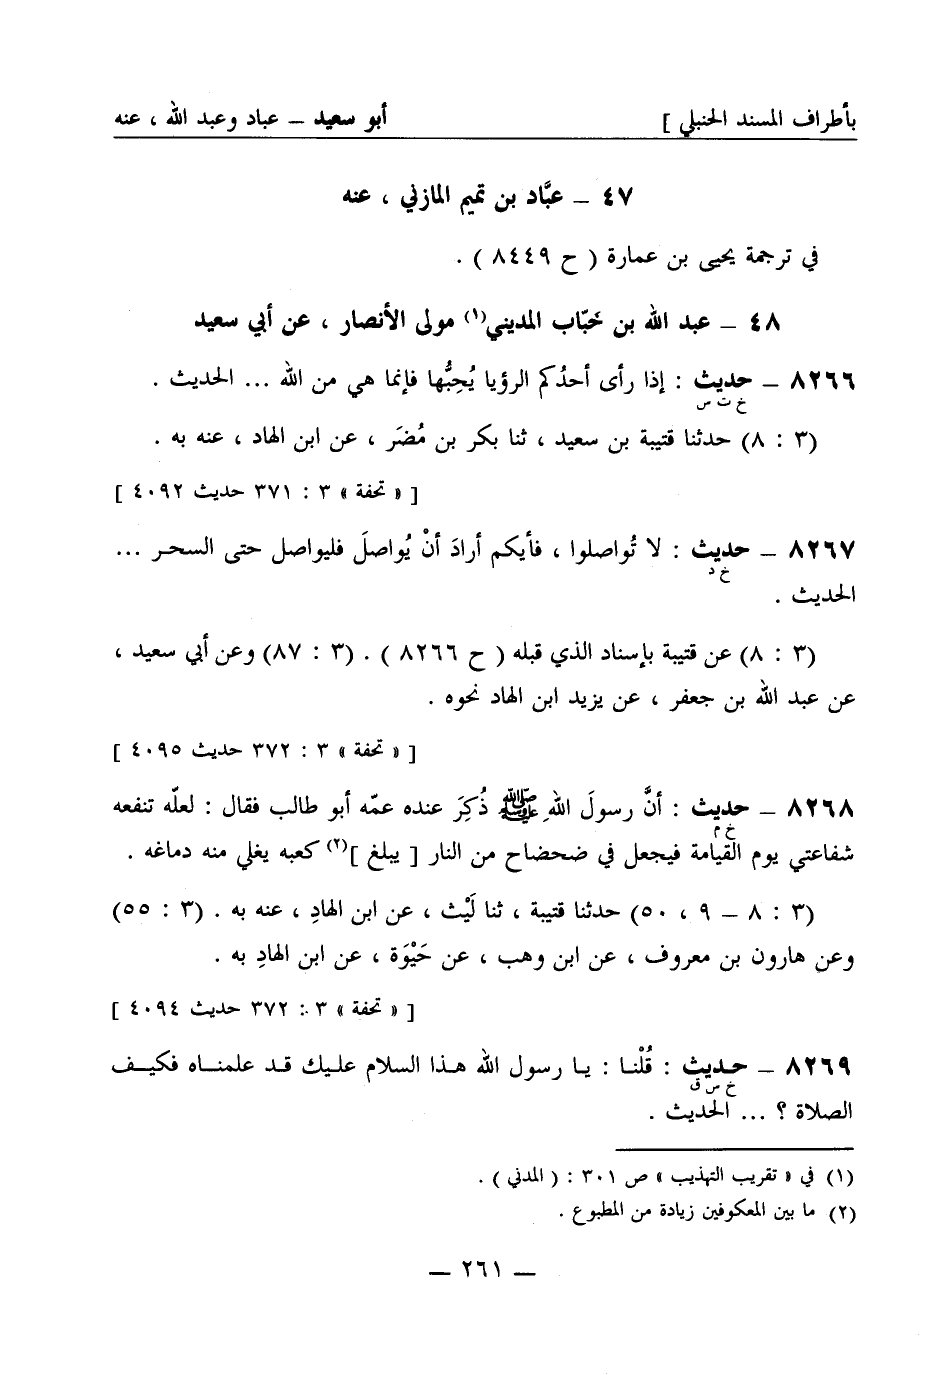 بأطراف المسند الحنبلي ] أبو سعيد – عباد وعبد الله ، عنه
٤٧ – عبَّاد بن تميم المازني ، عنه
في ترجمة يحيى بن عمارة ( ح ٨٤٤٩ ) .
٤٨ – عبد الله بن خَبّاب المديني(١) مولى الأنصار ، عن أبي سعيد
٨٢٦٦ – حديث : إذا رأى أحدُكم الرؤيا يُحِبُّها فإنما هي من الله ... الحديث .
خ ت س
(٣ : ٨) حدثنا قتيبة بن سعيد ، ثنا بكر بن مُضَر ، عن ابن الهاد ، عنه به .
[ « تحفة » ٣ : ٣٧١ حديث ٤٠٩٢ ]
٨٢٦٧ – حديث : لا تُواصلوا ، فأيكم أرادَ أنْ يُواصلَ فليواصل حتى السحر ...
خ د
الحديث .
(٣ : ٨) عن قتيبة بإسناد الذي قبله ( ح ٨٢٦٦ ) . (٣ : ٨٧) وعن أبي سعيد ،
عن عبد الله بن جعفر ، عن يزيد ابن الهاد نحوه .
[ « تحفة » ٣ : ٣٧٢ حديث ٤٠٩٥ ]
٨٢٦٨ – حديث : أنَّ رسولَ اللهِ ﷺ ذُكِرَ عنده عمّه أبو طالب فقال : لعلّه تنفعه
خ م
شفاعتي يوم القيامة فيجعل في ضحضاح من النار [ يبلغ ](٢) كعبه يغلي منه دماغه .
(٣ : ٨ – ٩ ، ٥٠) حدثنا قتيبة ، ثنا لَيْث ، عن ابن الهادِ ، عنه به . (٣ : ٥٥)
وعن هارون بن معروف ، عن ابن وهب ، عن حَيْوَة ، عن ابن الهادِ به .
[ « تحفة » ٣ : ٣٧٢ حديث ٤٠٩٤ ]
٨٢٦٩ – حديث : قُلْنا : يا رسول الله هذا السلام عليك قد علمناه فكيف
خ س ق
الصلاة ؟ ... الحديث .
(١) في « تقريب التهذيب » ص ٣٠١ : ( المدني ) .
(٢) ما بين المعكوفين زيادة من المطبوع .
– ٢٦١ –